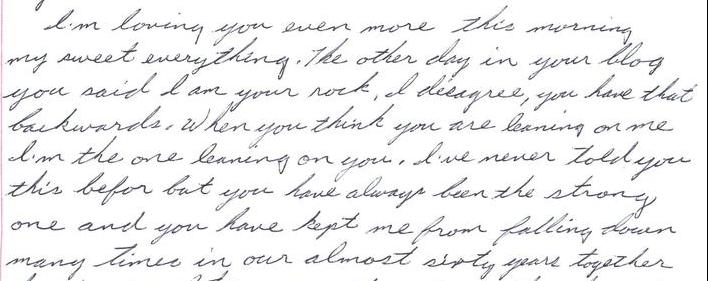 I'm loving you even more this morning
my sweet everything. The other day in your blog
you said I am your rock, I disagree, you have that
backwards. When you think you are leaning on me
I'm the one leaning on you. I've never told you
this befor but you have always been the strong
one and you have kept me from falling down
many times in our almost sixty years together